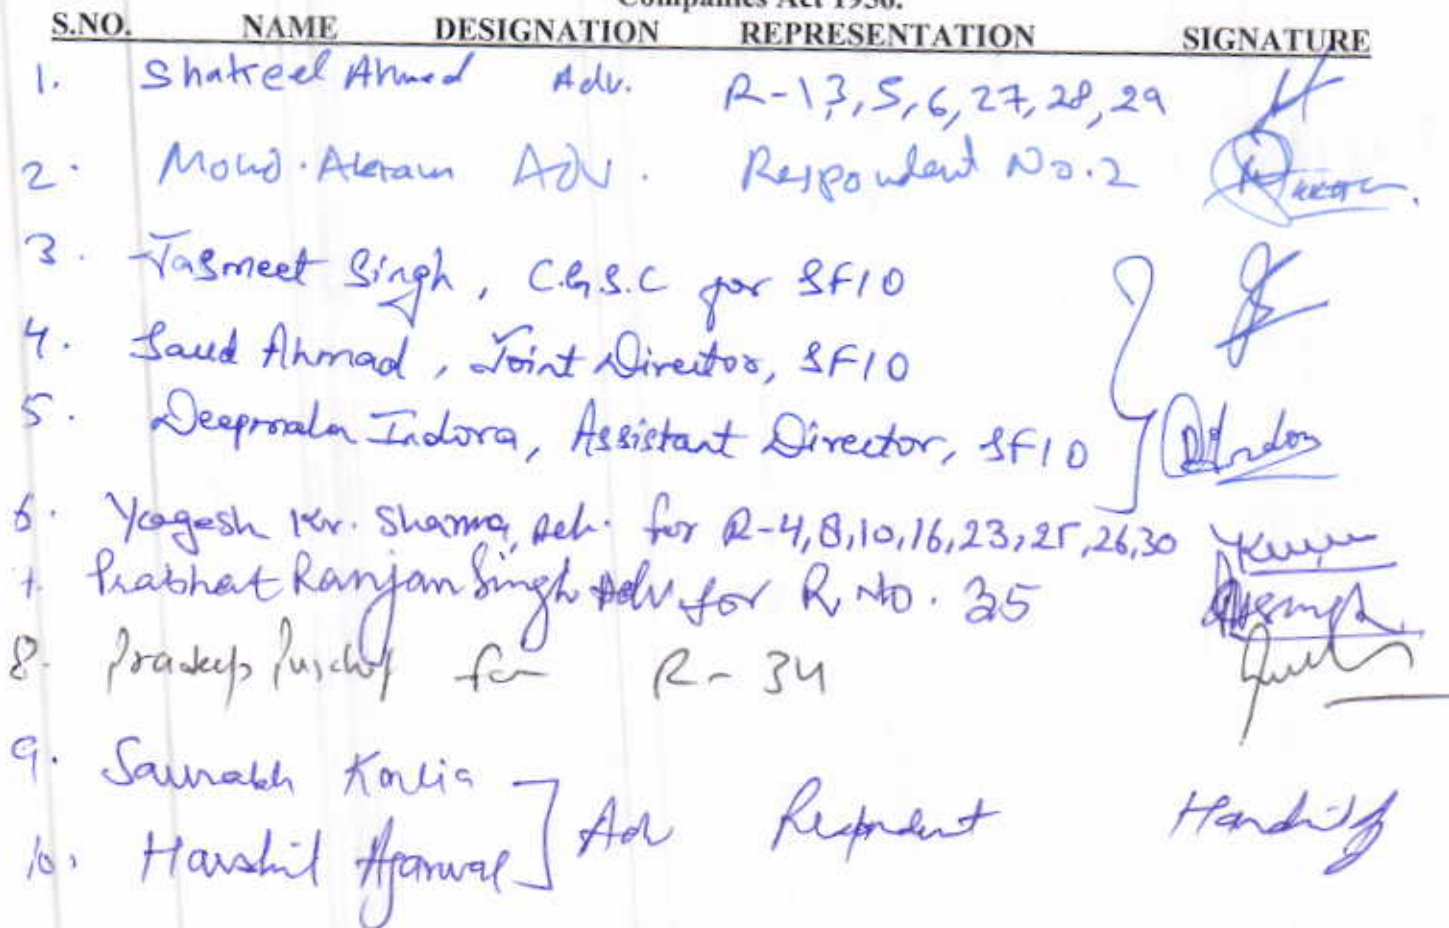 Companies Act 1956.
S.NO. NAME DESIGNATION REPRESENTATION SIGNATURE
1. Shakeel Ahmed Adv. R-13,5,6,27,28,29
2. Mohd. Akram ADV. Respondent No.2
3. Jasmeet Singh, C.G.S.C for SFIO
4. Saud Ahmad, Joint Director, SFIO
5. Deepmala Indora, Assistant Director, SFIO
6. Yogesh Kr. Sharma, Adv. for R-4,8,10,16,23,25,26,30
7. Prabhat Ranjan Singh Adv for R.No. 35
8. Pradeep for R-34
9. Saurabh Kalia
10. Harshil Agarwal Adv Respondent